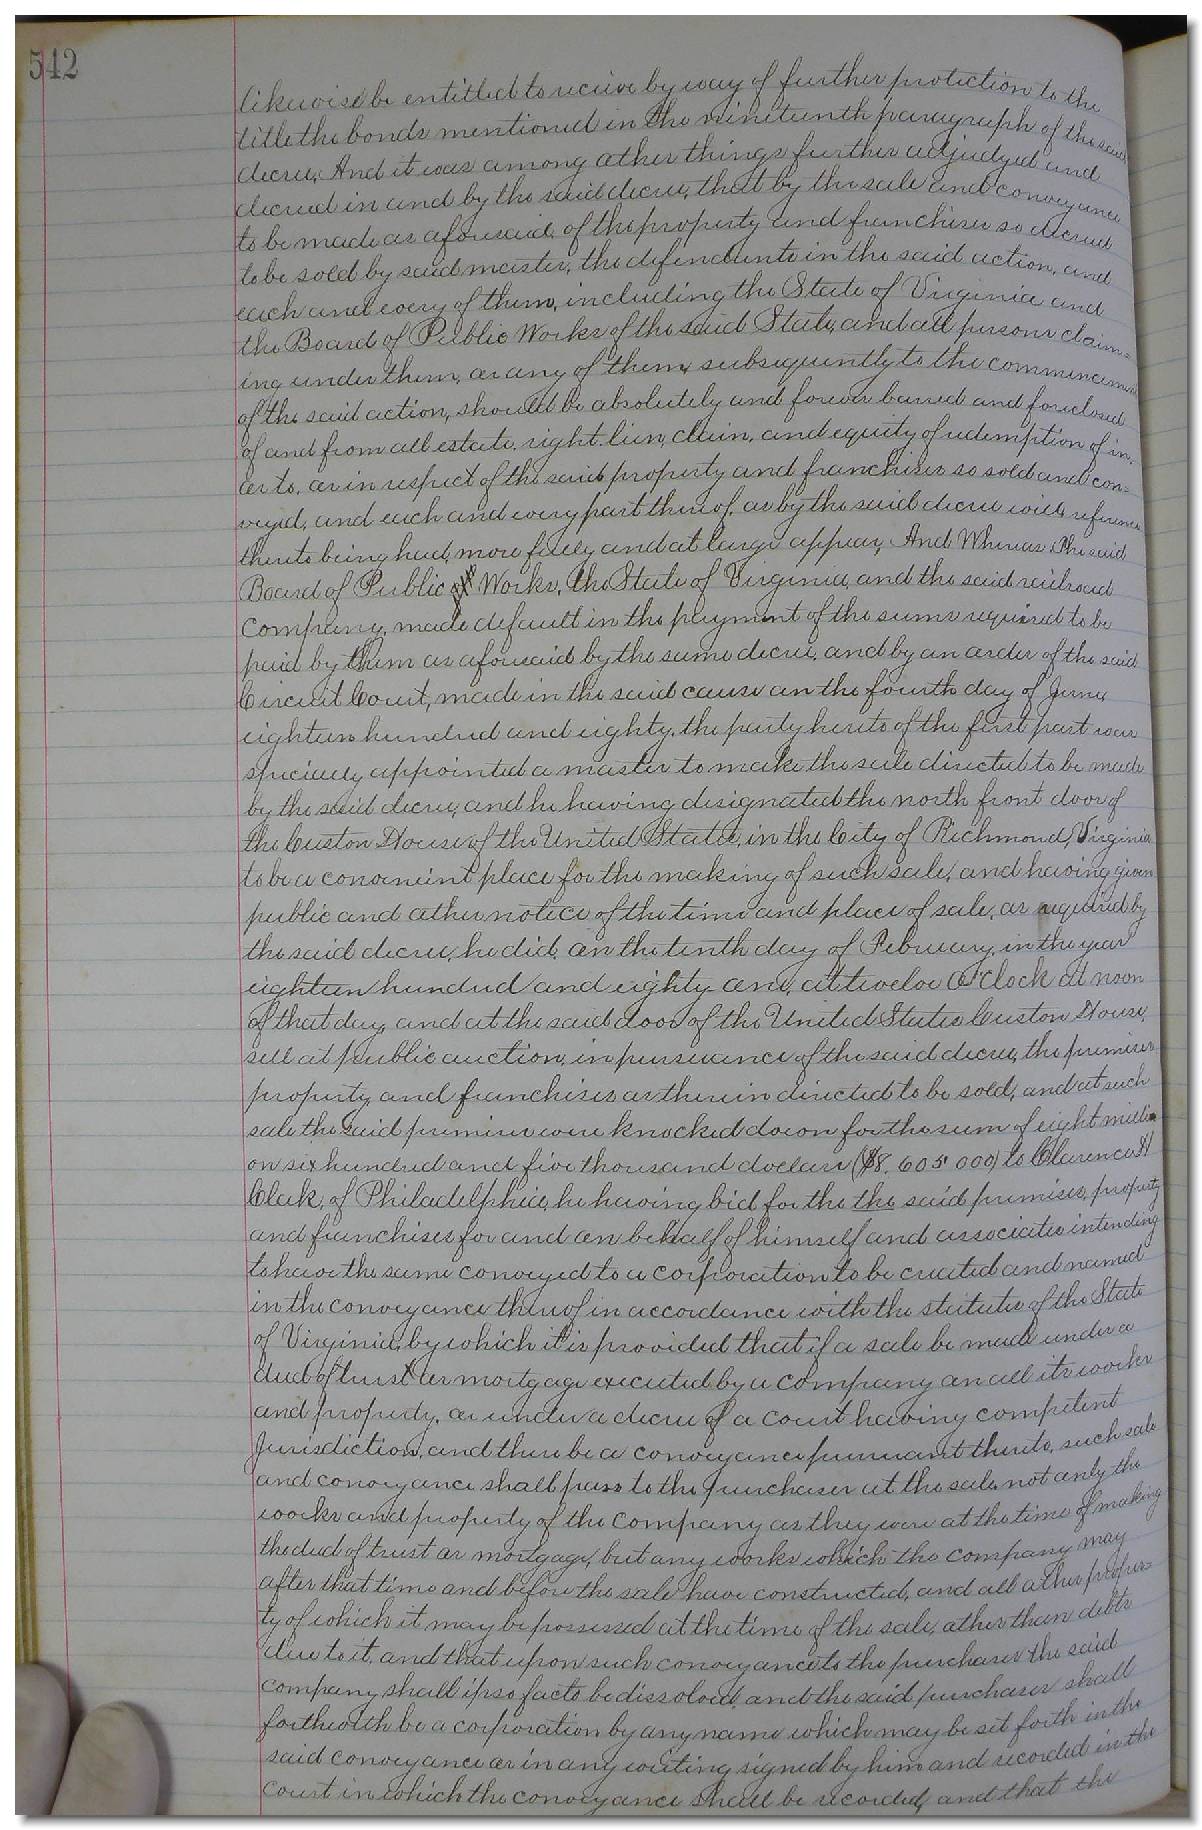 542
likewise be entitled to receive by way of further protection to the
title the bonds mentioned in the nineteenth paragraph of the said
decree, And it was among other things further adjudged and
decreed in and by the said decree, that by the sale and conveyance
to be made as aforesaid, of the property and franchises so decreed
to be sold by said master, the defendants in the said action, and
each and every of them, including the State of Virginia and
the Board of Public Works of the said State, and all persons claim=
ing under them, or any of them, subsequently to the commencement
of the said action, should be absolutely and forever barred and foreclosed
of and from all estate, right, lien, claim, and equity of redemption of in,
or to, or in respect of the said property and franchises so sold and con=
veyed, and each and every part thereof, as by the said decree with reference
thereto being had, more fully and at large appear, And Whereas The said
Board of Public of Works, the State of Virginia, and the said railroad
company, made default in the payment of the sums required to be
paid by them as aforesaid by the same decree, and by an order of the said
Circuit Court, made in the said cause on the fourth day of June,
eighteen hundred and eighty, the party hereto of the first part was
specially appointed a master to make the sale directed to be made
by the said decree, and he having designated the north front door of
the Custom House of the United States, in the City of Richmond, Virginia
to be a convenient place for the making of such sale, and having given
public and other notice of the time and place of sale, as required by
the said decree, he did, on the tenth day of February, in the year
eighteen hundred and eighty one, at twelve O'Clock at noon
of that day, and at the said door of the United States Custom House,
sell at public auction, in pursuance of the said decree, the premises
property and franchises as therein directed to be sold, and at such
sale the said premises were knocked down for the sum of eight milli=
on six hundred and five thousand dollars ($8,605 000) to Clarence H
Clark, of Philadelphia, he having bid for the the said premises, property
and franchises for and on behalf of himself and associates intending
to have the same conveyed to a corporation to be created and named
in the conveyance thereof in accordance with the statutes of the State
of Virginia, by which it is provided that if a sale be made under a
deed of trust or mortgage executed by a company on all its works
and property, or under a decree of a court having competent
Jurisdiction, and there be a conveyance pursuant thereto, such sale
and conveyance shall pass to the purchaser at the sale, not only the
works and property of the company as they were at the time of making
the deed of trust or mortgage, but any works which the company may
after that time and before the sale have constructed, and all other proper=
ty of which it may be possessed at the time of the sale, other than debts
due to it, and that upon such conveyance to the purchaser the said
company shall ipso facto be dissolved, and the said purchaser shall
forthwith be a corporation by any name which may be set forth in the
said conveyance or in any writing signed by him and recorded in the
court in which the conveyance shall be recorded, and that the